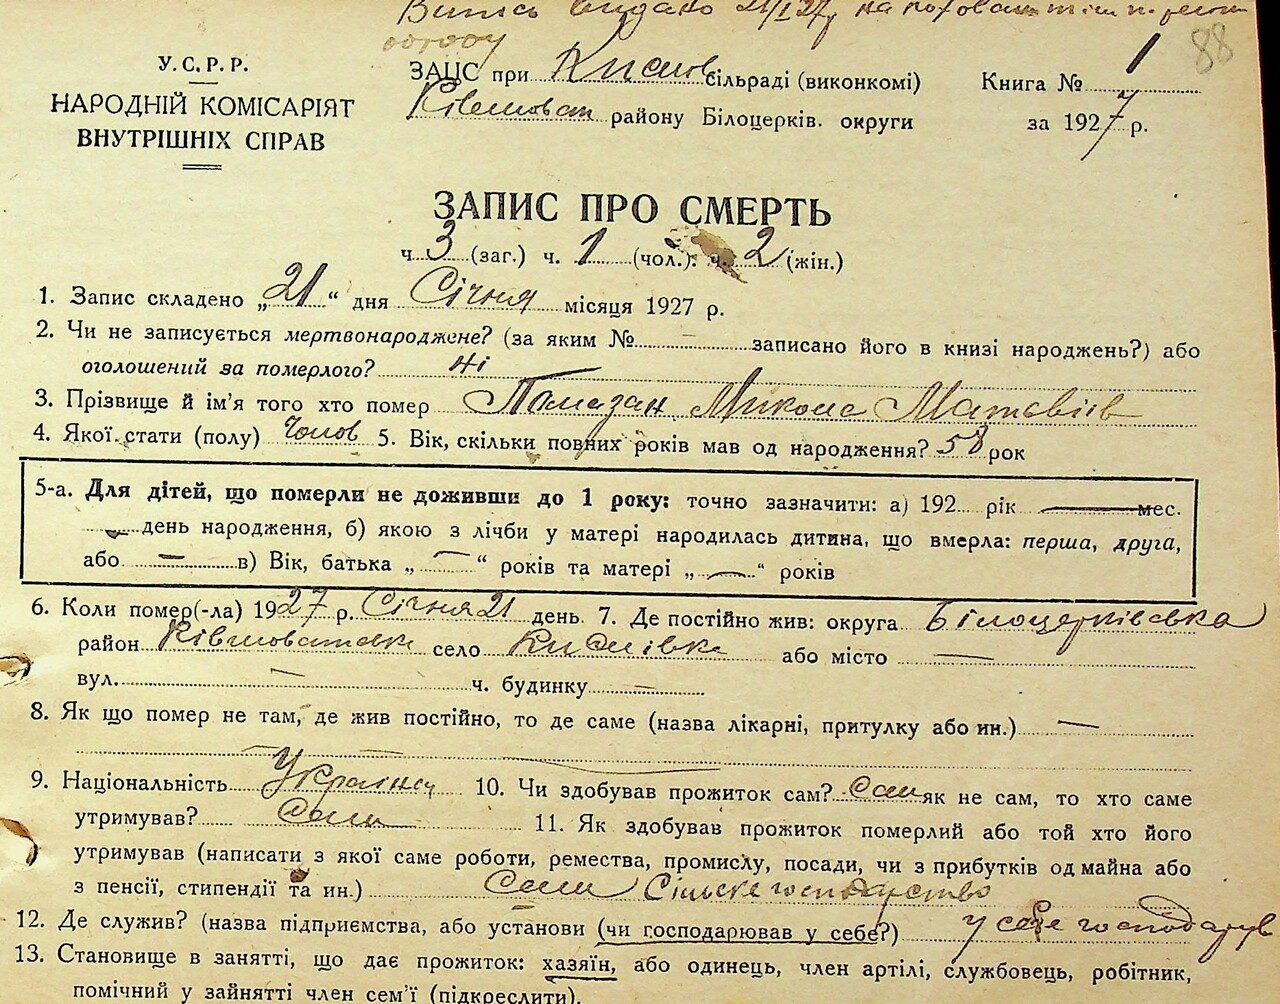 Випис видано 21/I 27р на поховання
88
У.С.Р.Р.
НАРОДНІЙ КОМІСАРІЯТ
ВНУТРІШНІХ СПРАВ
ЗАЦС при Кислов сільраді (виконкомі)
Ківшоват районy Білоцерків. округи
Книга № 1
за 1927 р.
ЗАПИС ПРО СМЕРТЬ
ч. 3 (заг.) ч. 1 (чол.). ч. 2 (жін.)
1. Запис складено „21“ дня Січня місяця 1927 р.
2. Чи не записується мертвонароджене? (за яким № — записано його в книзі народжень?) або
оголошений за померлого? ні
3. Прізвище й ім'я того хто помер Памазан Микола Матвіїв
4. Якої стати (полу) Чолов 5. Вік, скільки повних років мав од народження? 58 рок
5-а. Для дітей, що померли не доживши до 1 року: точно зазначити: а) 192 рік — мес.
день народження, б) якою з лічби у матері народилась дитина, що вмерла: перша, друга,
або — в) Вік, батька „—“ років та матері „—“ років
6. Коли помер(-ла) 1927 р. Січня 21 день 7. Де постійно жив: округа Білоцерківська
район Ківшоватське село Кислівка або місто —
вул. — ч. будинку —
8. Як що помер не там, де жив постійно, то де саме (назва лікарні, притулку або ин.) —
9. Національність Українец 10. Чи здобував прожиток сам? Сам як не сам, то хто саме
утримував? Сам 11. Як здобував прожиток померлий або той хто його
утримував (написати з якої саме роботи, ремества, промислу, посади, чи з прибутків од майна або
з пенсії, стипендії та ин.) Сам Сільське господарство
12. Де служив? (назва підприємства, або установи (чи господарював у себе?) у себе господарув
13. Становище в занятті, що дає прожиток: хазяїн, або одинець, член артілі, службовець, робітник,
помічний у зайнятті член сем'ї (підкреслити).